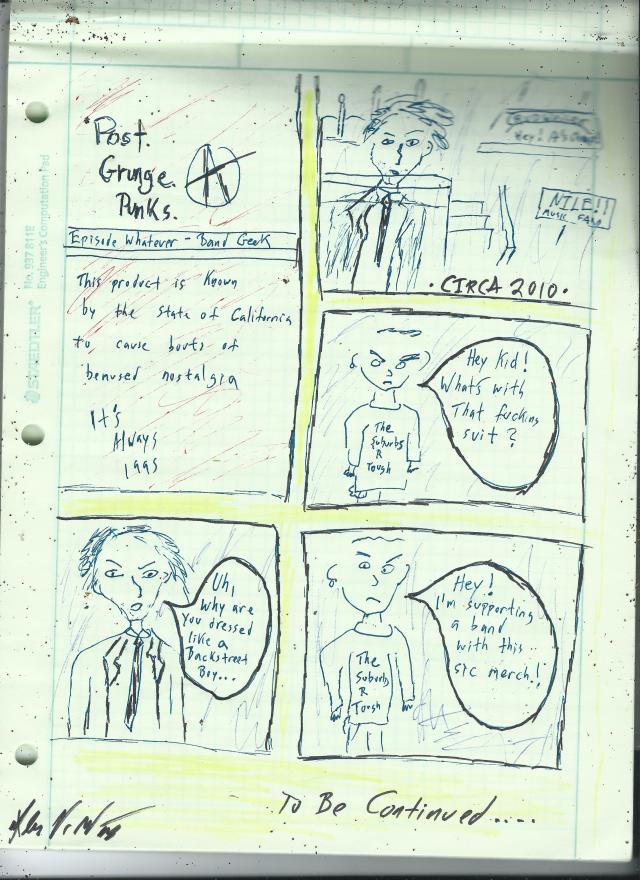 Post.
Grunge.
Punks.
A
Episode Whatever - Band Geek
This product is Known
by the state of California
to cause bouts of
bemused nostalgia
It's
Always
1995
Hey!
NILE!!
MUSIC FARM
• CIRCA 2010 •
Hey Kid!
Whats with
That fucking
suit?
The
Suburbs
R
Tough
Uh,
Why are
you dressed
like a
Backstreet
Boy...
Hey!
I'm supporting
a band
with this
sic merch!
The
Suburbs
R
Tough
To Be Continued....
STAEDTLER®
No. 937 811E
Engineer's Computation Pad